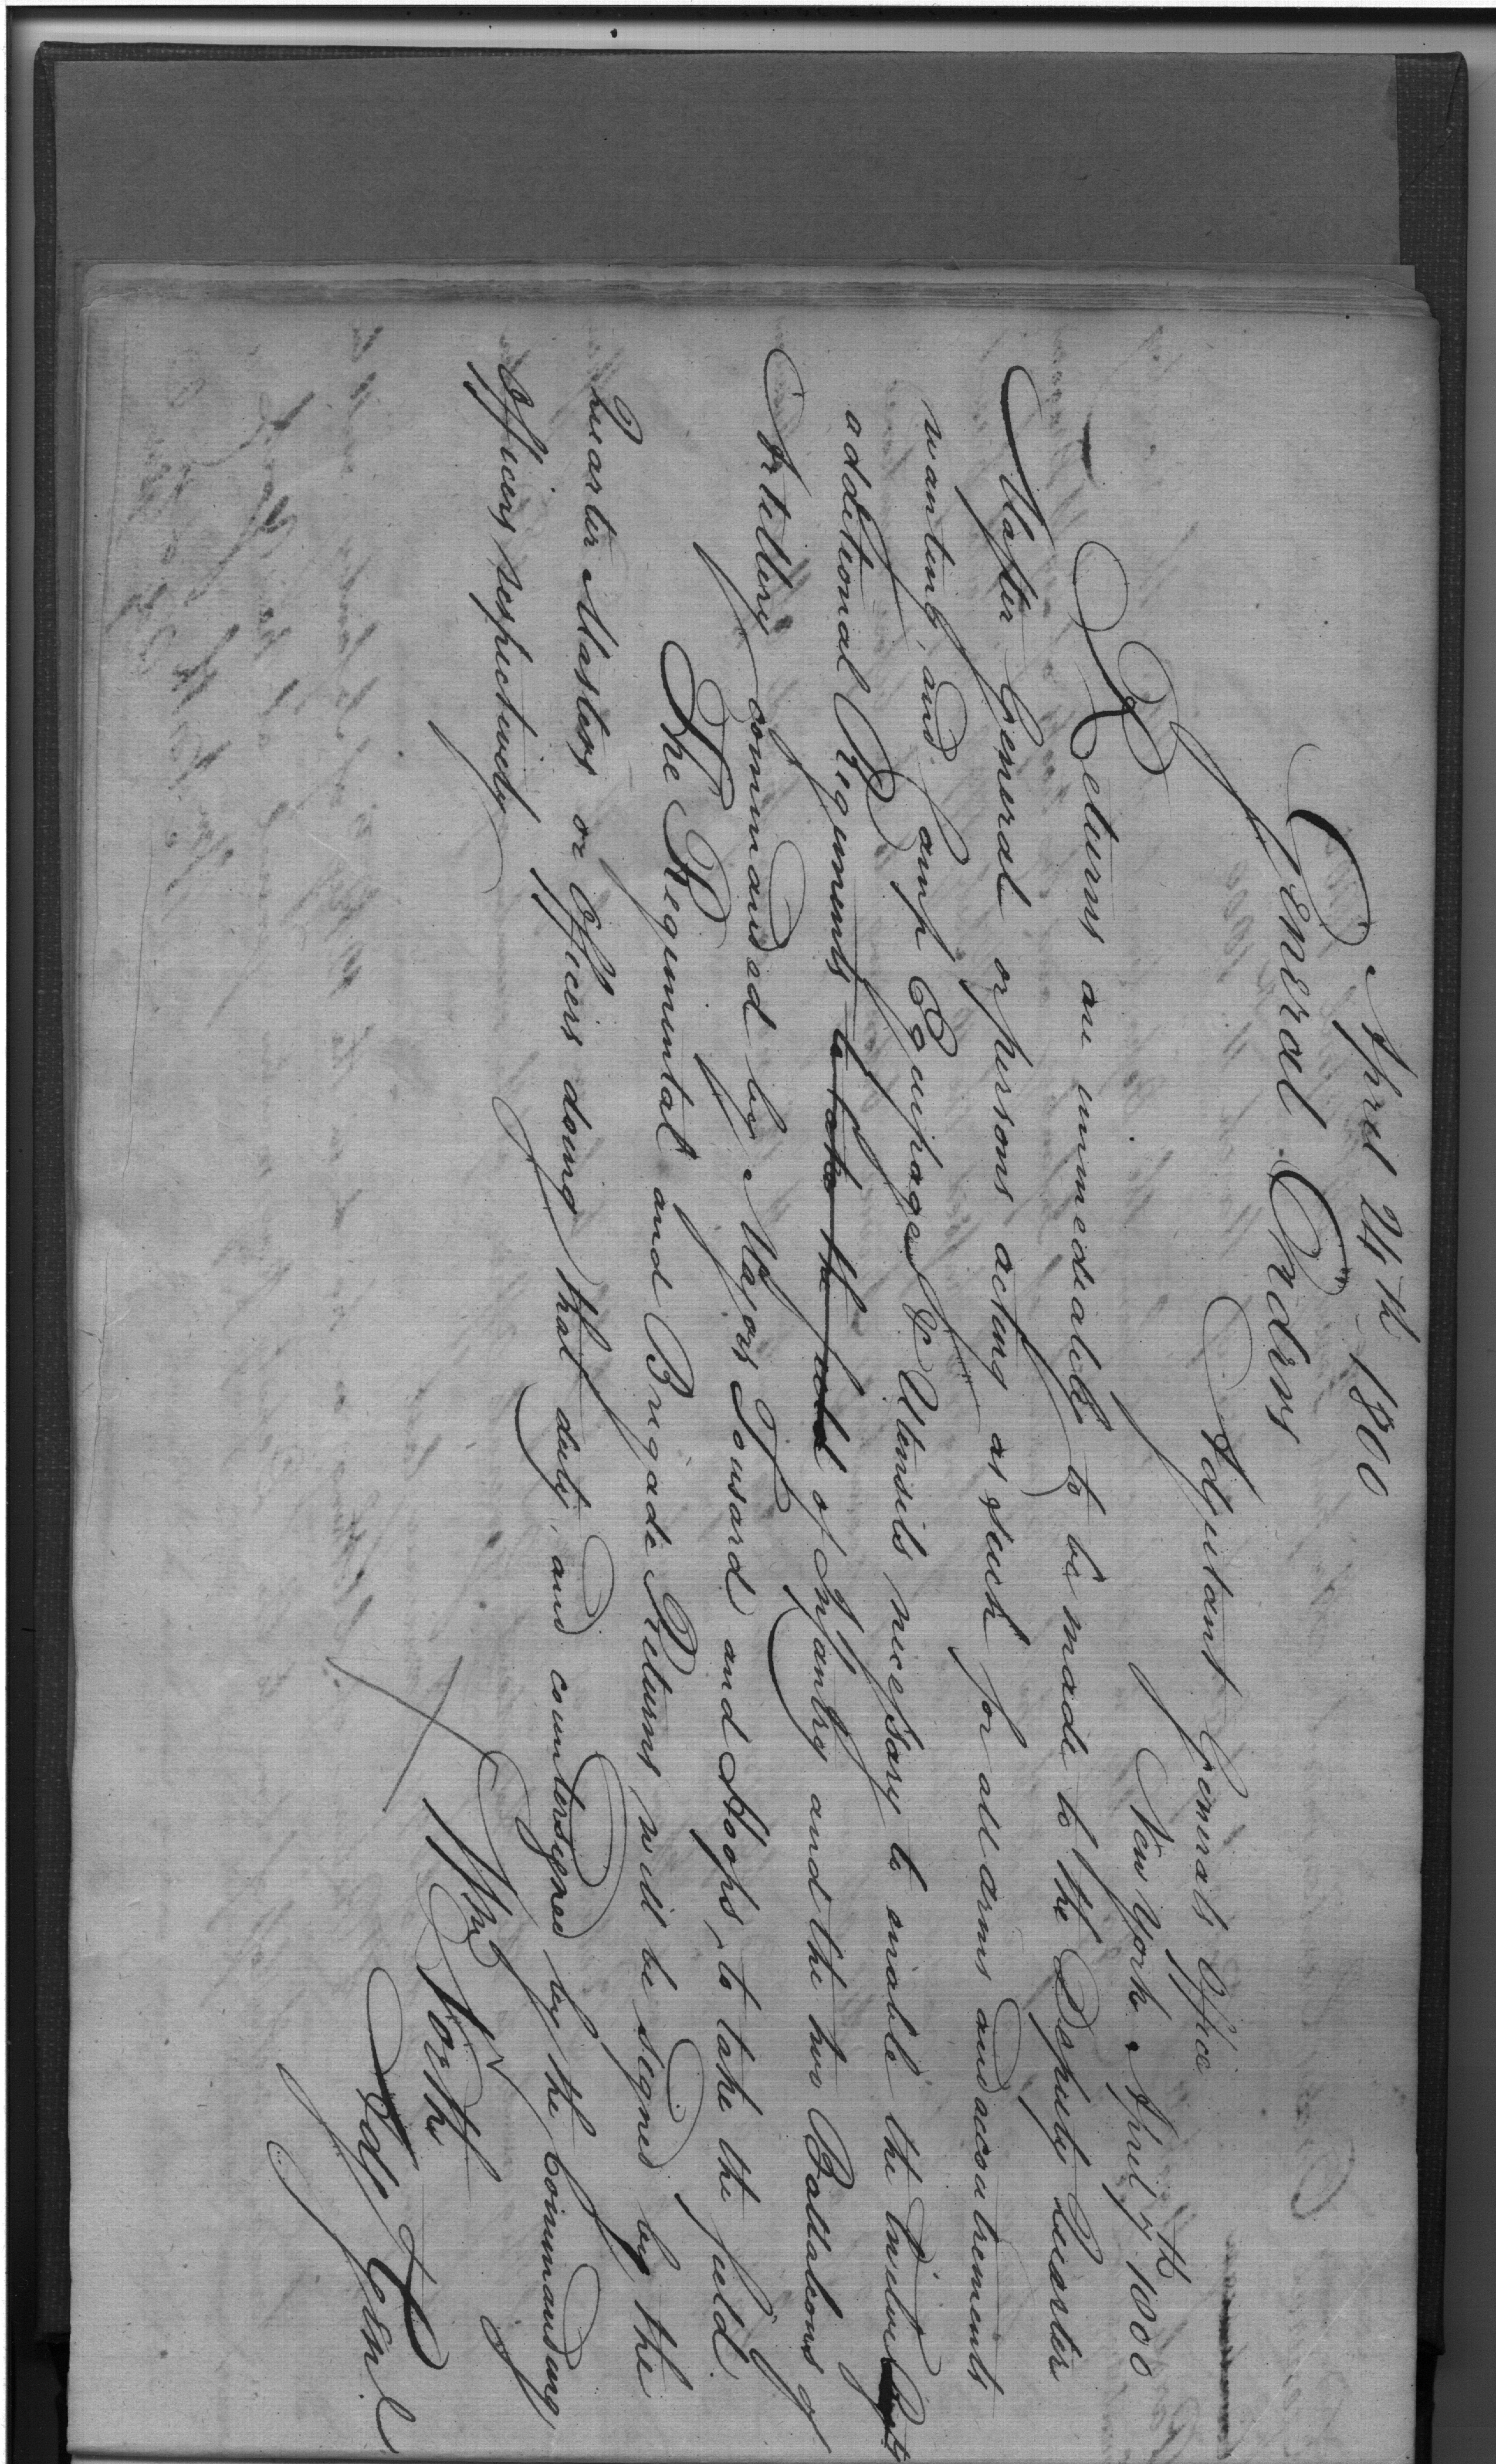 April 24th 1800
General Orders
Adjutant Generals Office
New York April 7th 1800
Returns are immediately to be made to the Deputy Quarter
Master General or persons acting as such for all arms and accoutrements
wanting, and Camp Equipage & Utensils necessary to enable the twelve
additional Regiments to take the field of Infantry and the two Battalions of
Artillery commanded by Majors Tousard and Hoops, to take the field.
The Regimental and Brigade Returns, will be signed by the
Quarter Masters or Officers doing that duty, and countersigned by the Commanding
Officers respectively
Wm North
Adjt Genl